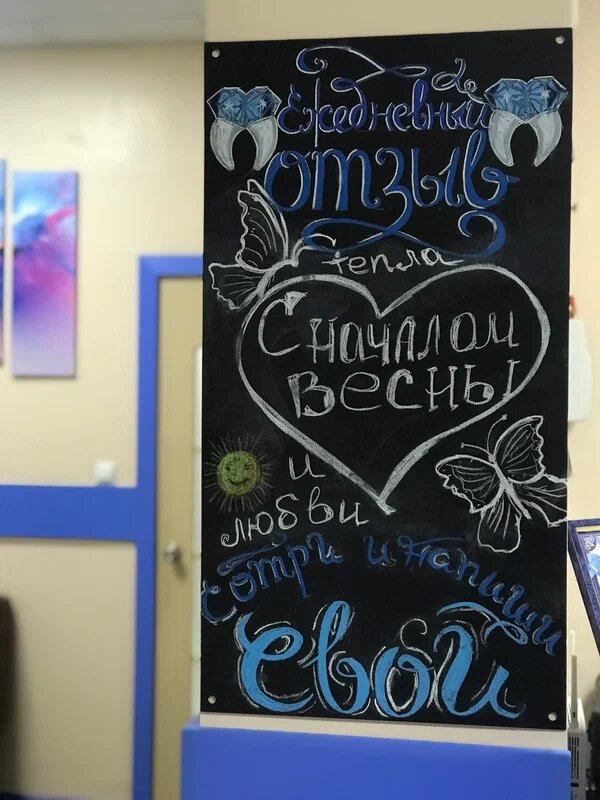 Ежедневный
отзыв
Тепла
С началом
весны
и
любви
Сотри и напиши
свой